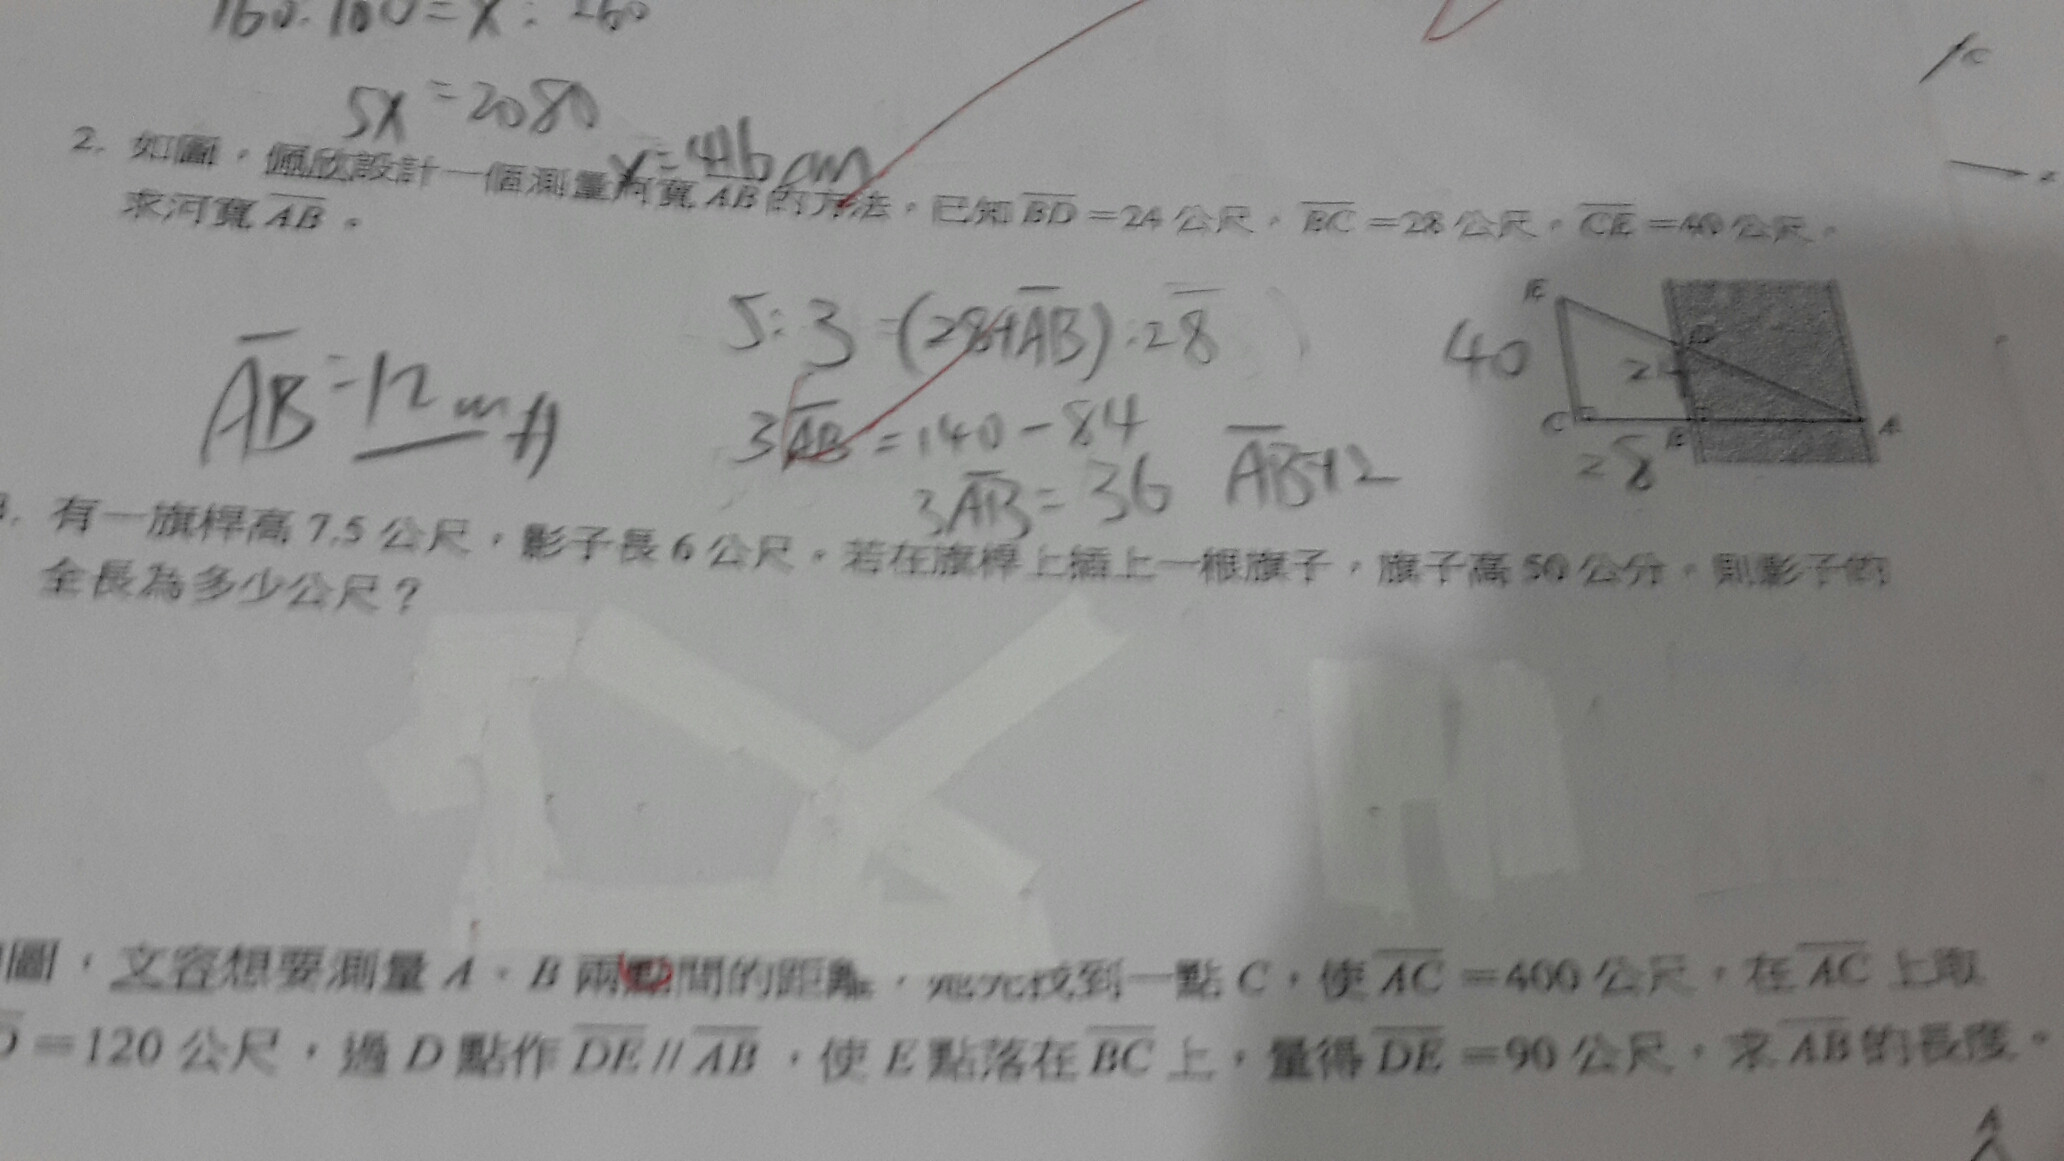 160:100=x:260
5x=2080
x=416cm
2. 如圖，佩欣設計一個測量河寬 AB 的方法，已知 BD=24 公尺，BC=28 公尺，CE=40 公尺，
求河寬 AB。
5:3=(28+AB):28
3AB=140-84
3AB=36 AB=12
AB=12m
E
D
40
24
C
B
A
28
有一旗桿高 7.5 公尺，影子長 6 公尺。若在旗桿上插上一根旗子，旗子高 50 公分，則影子的
全長為多少公尺？
圖，文容想要測量 A、B 兩點間的距離，她先找到一點 C，使 AC=400 公尺，在 AC 上取
=120 公尺，過 D 點作 DE//AB，使 E 點落在 BC 上，量得 DE=90 公尺，求 AB 的長度。
A